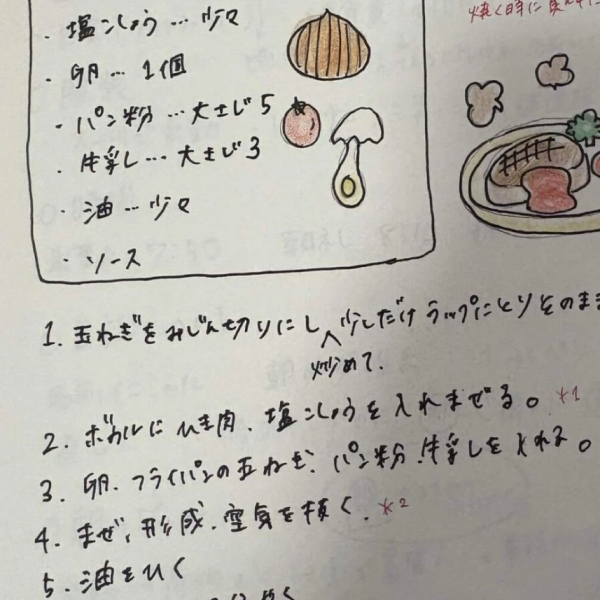 ・塩こしょう…少々
・卵…1個
・パン粉…大さじ5
・牛乳…大さじ3
・油…少々
・ソース
焼く時に
1. 玉ねぎをみじん切りにし 少しだけラップにとりそのまま
炒めて.
2. ボウルにひき肉、塩こしょうを入れまぜる。*1
3. 卵、フライパンの玉ねぎ、パン粉、牛乳を入れる。
4. まぜ、形成、空気を抜く。*2
5. 油をひく